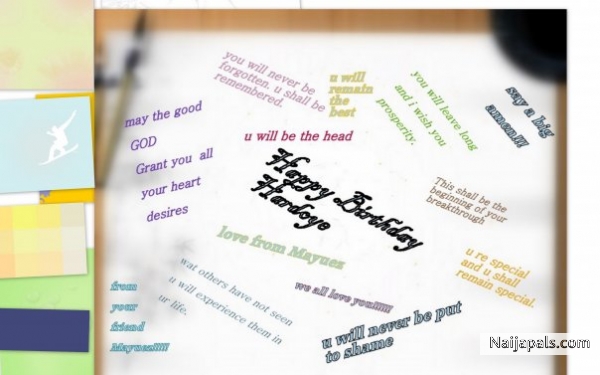 you will never be
forgotten. u shall be
remembered.
u will
remain
the
best
you will leave long
and i wish you
prosperity.
say a big
amen!!!
may the good
GOD
Grant you all
your heart
desires
u will be the head
Happy Birthday
Hardoye
This shall be the
beginning of your
breakthrough
love from Mayuez
u re special
and u shall
remain special.
wat others have not seen
u will experience them in
ur life.
we all love you!!!!!
from
your
friend
Mayuez!!!!!
u will never be put
to shame
Naijapals.com